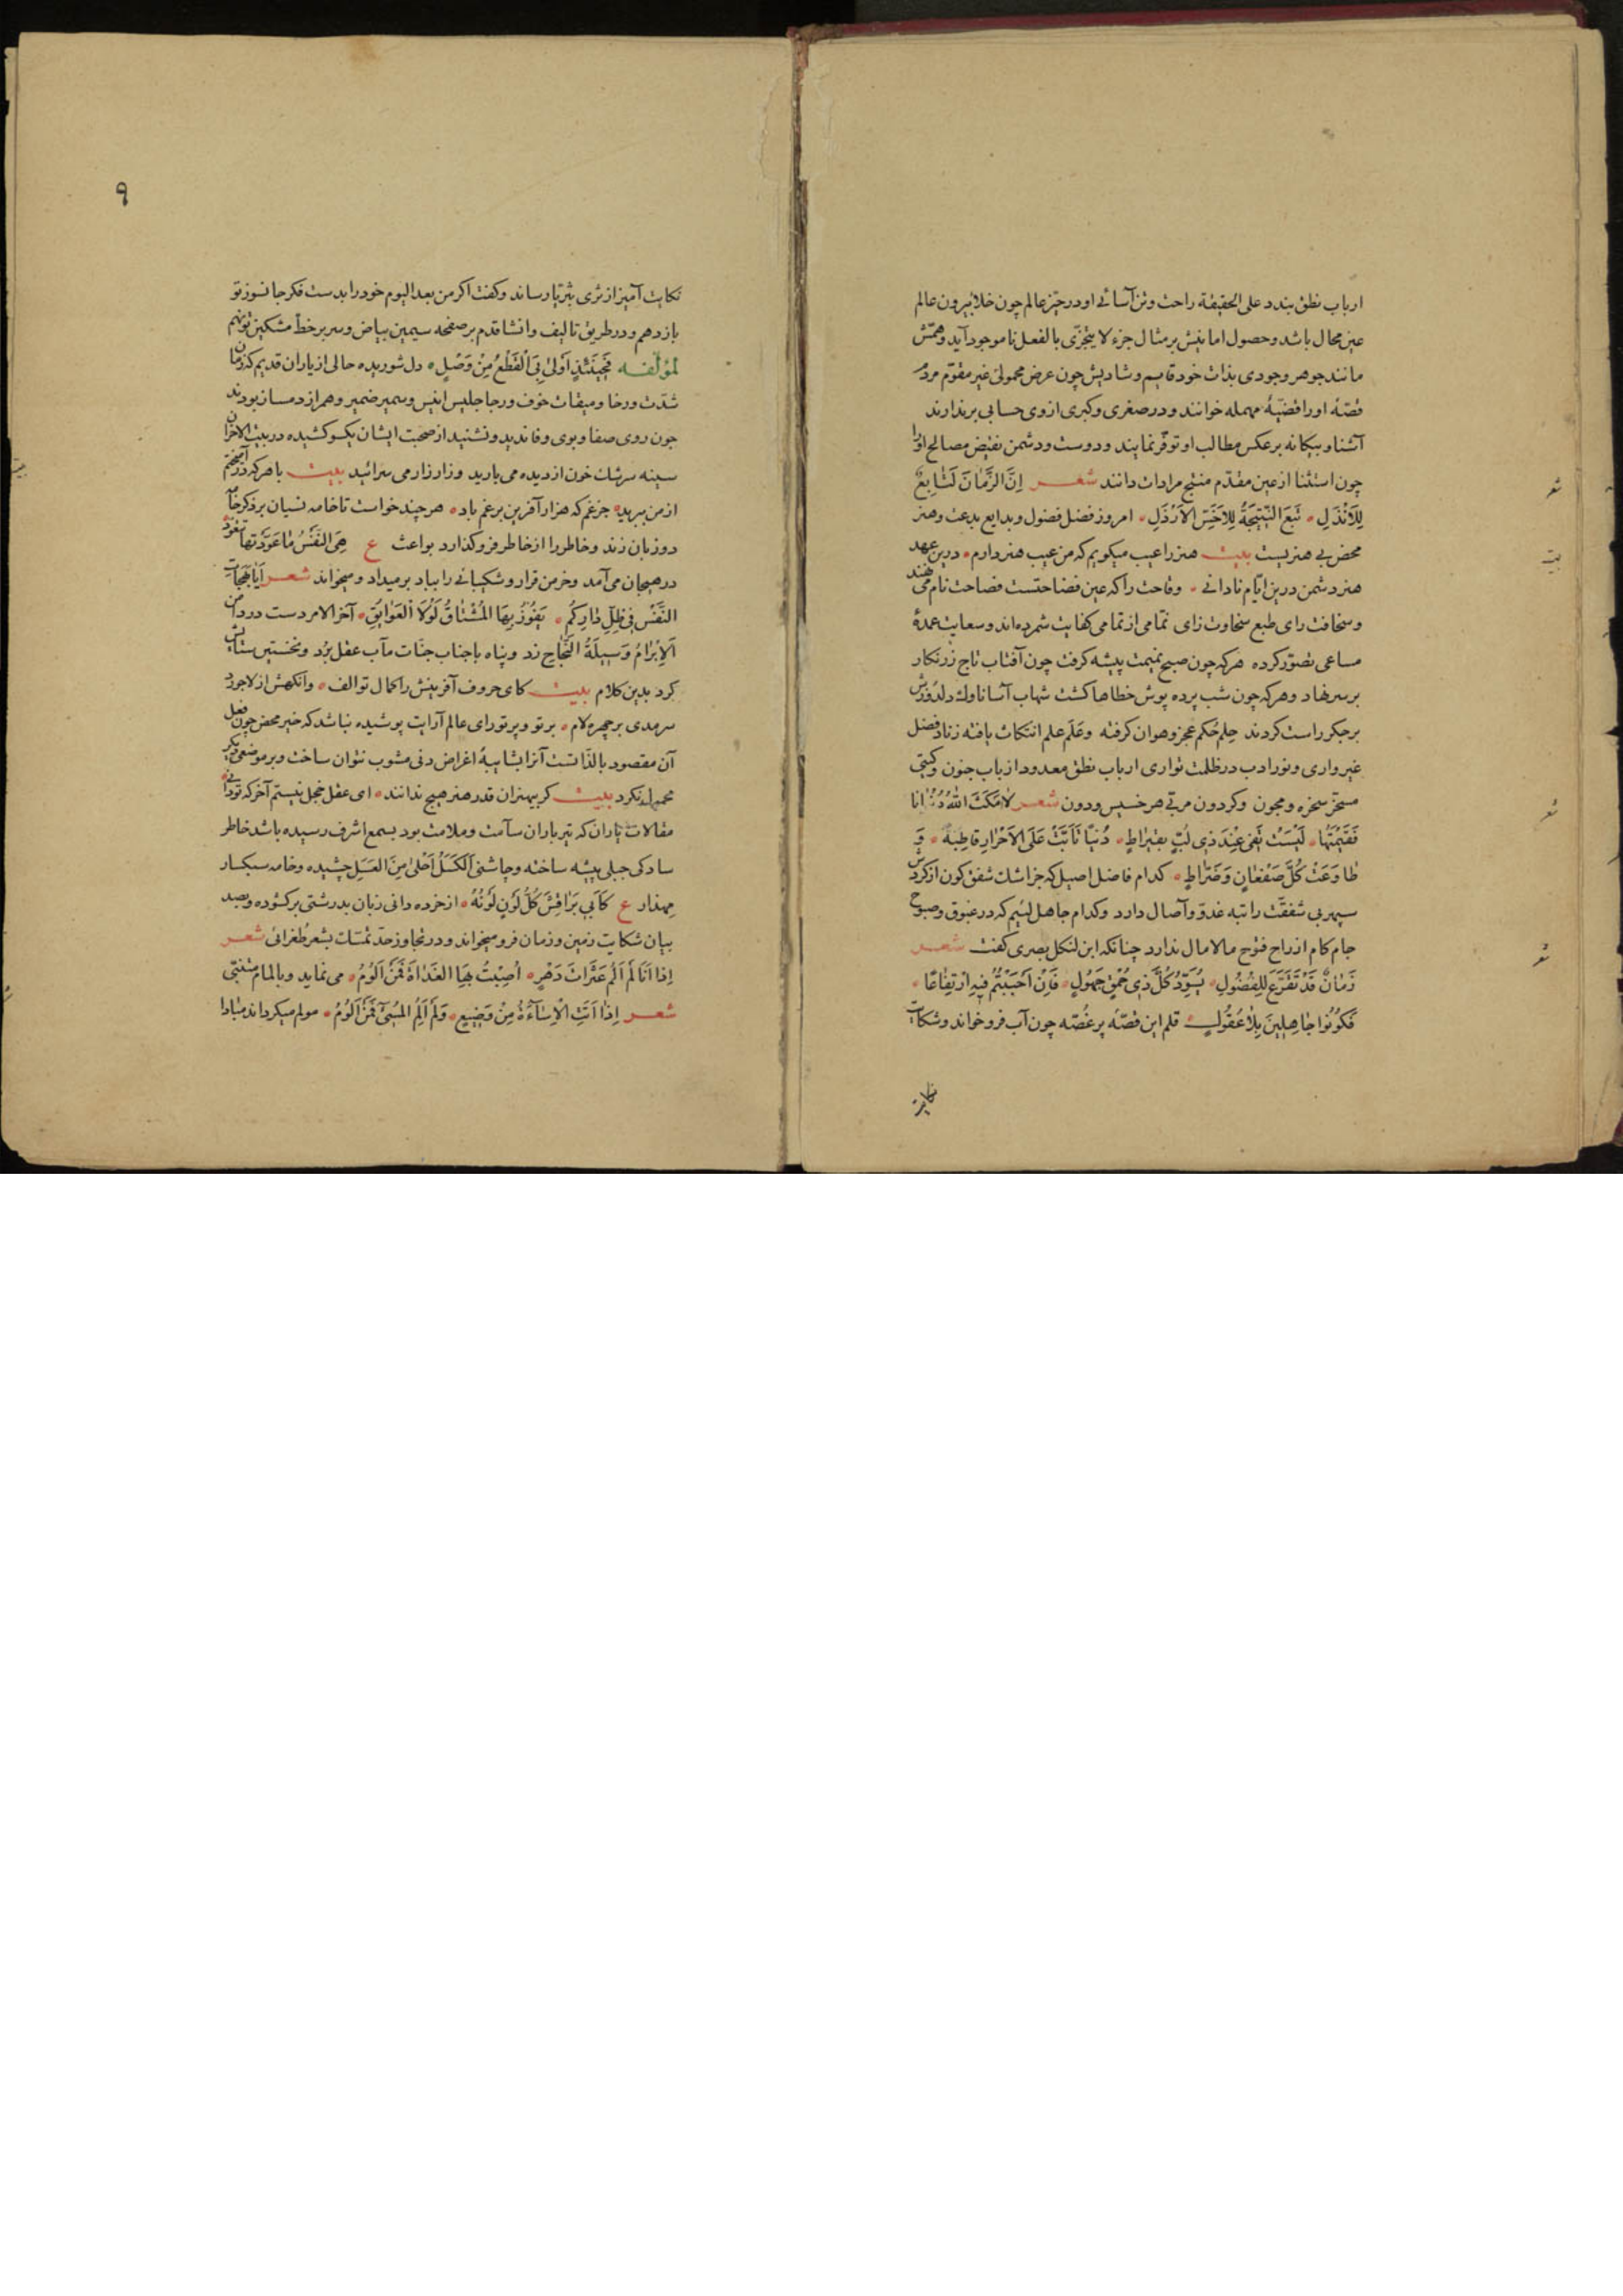 ارباب نطق بندد علی الحقیقة راحت وتن آسائی او در حیّز عالم چون خلا بیرون عالم
عین محال باشد و حصول امانیش بر مثال جزء لا یتجزّی بالفعل ناموجود آید وهمّتش
مانند جوهر وجودی بذات خود قایم و شادیش چون عرض محمولی غیر مقوّم مردم
قصّهٔ او را قضیّهٔ مهمله خوانند و در صغری وکبری از وی حسابی بر ندارند
آشنا و بیکانه بر عکس مطالب او توفّر نمایند و دوست و دشمن نقیض مصالح او را
چون استثنا از عین مقدّم منتج مرادات دانند شعر اِنَّ الزَّمٰانَ لَتٰابِعٌ
لِلاَنْذَلِ تَبَعَ النَّتیٖجَةُ لِلاَخَسِّ الاَرْذَلِ امروز فضل فضول و بدایع بدعت و هنر
محض بی هنریست بیت هنر را عیب میکویم که من عیب هنر دارم درین عهد
هنر دشمن درین ایّام نادانی وقاحت را که عین فضاحتست فصاحت نام می نهند
وسخافت رای طبع سخاوت زای نمّامی از تمامی کفایت شمرده‌اند و سعایت عمدهٔ
مساعی تصوّر کرده هر که چون صبح نمیمت پیشه کرفت چون آفتاب تاج زرنکار
بر سر نهاد وهر که چون شب پرده پوش خطاها کشت شهاب آسا ناوک دلدوزش
بر جکر راست کردند حِلم حُکم عجز وهوان کرفته وعَلَم علم انتکاث یافته زناد فضل
غیر واری و نور ادب در ظلمت تواری ارباب نطق معدود از باب جنون وکیتی
مسخّر سخره و مجون وکردون مربّی هر خسیس ودون شعر لاٰ مَکَّنَ اللّٰهُ دُنْیٰانا
فَقیٖمَتُهٰا لَیْسَتْ تَفیٖ عِنْدَ ذیٖ لُبٍّ بِقیٖرٰاطٍ دُنْیٰا تَأَبَّتْ عَلَی الاَحْرٰارِ قاطِبَةً وَ
طٰاوَعَتْ کُلَّ صَفْعٰانٍ وَضَرّٰاطٍ کدام فاضل اصیل که جز اشک شفق کون از کردش
سپهر بی شفقّت راتبه غدوّ وآصال دارد وکدام جاهل لئیم که در غبوق وصبوح
جام کام از راح فتوح مالامال ندارد چنانکه ابن لنکک بصری کفت شعر
زَمٰانٌ قَدْ تَفَرَّغَ لِلفُضُولِ یُسَوِّدُ کُلَّ ذیٖ حُمْقٍ جَهُولٍ فَاِنْ اَحْبَبْتُمُ فیٖهِ ارْتِفٰاعًا
فَکُونُوا جٰاهِلیٖنَ بِلاٰ عُقُولٍ قلم این قصّهٔ پر غُصّه چون آب فرو خواند وشکایت
نکایت
شعر
بیت
شعر
شعر
۹
نکایت آمیز از ثری بثریّا رساند وکفت اکر من بعد الیوم خود را بدست فکر جانسوز تو
باز دهم و در طریق تالیف وانشا قدم بر صفحه سیمین بیاض وسر بر خطّ مشکین تو نهم
لمؤلّفه فَحیٖنَئِذٍ اَوْلیٰ بِیَ الْقَطْعُ مِنْ وَصْلٍ دل شوریده حالی از یاران قدیم که زمان
شدّت ورخا و میقات خوف ورجا جلیس انیس وسمیر ضمیر وهمراز دمساز بودند
چون روی صفا و بوی وفا ندید ونشنید از صحبت ایشان یکسو کشیده در بیت الاحزان
سینه سرشک خون از دیده می بارید و زار زار می سرائید بیت با هر که در آمیختم
از من ببرید جز غم که هزار آفرین بر غم باد هر چند خواست تا خامه نسیان بر ذکر خامه
دو زبان زند و خاطر را از خاطر فرو کذارد بواعث ع هِیَ النَّفْسُ مٰا عَوَّدْتَهٰا تَتَعَوَّدُ
در هیجان می آمد وخرمن قرار وشکیبائی را بباد بر میداد ومیخواند شعر اَیٰا حٰاجٰاتِ
النَّفْسِ فیٖ ظِلِّ دٰارِکُم یَفُوزُ بِهَا الْمُشْتٰاقُ لَوْلاَ العَوٰایِقِ آخر الامر دست در دامن
اَلاِبْرٰامُ وَسیٖلَةُ النَّجٰاحِ زد و پناه با جناب جنّات مآب عقل برد ونخستین ستایش
کرد بدین کلام بیت کای حروف آفرینش را کمال تو الف وانکهش از لاجورد
سرمدی بر چهره لام بر تو و پرتو رای عالم آرایت پوشیده نباشد که خیر محض چون فعل
آن مقصود بالذّاتست آنرا بشایبهٔ اغراض دنی مشوب نتوان ساخت و بر موضعی دیکر
محمول نکرد بیت کر بیهنران قدر هنر هیچ ندانند ای عقل خجل نیستم آخر که تو دانی
مقالات یاران که تیر باران سآمت وملامت بود بسمع اشرف رسیده باشد خاطر
سادکی جبلی پیشه ساخته وچاشنی اَلکَسَلُ اَحْلیٰ مِنَ العَسَلِ چشیده وخامه سبکسار
مهذار ع کَأَبیٖ بَرٰاقِشَ کُلُّ لَوْنٍ لَوْنُهُ از خرده دانی زبان بدرشتی برکشوده وبصد
بیان شکایت زمین وزمان فرو میخواند و در تجاوز حدّ تمسّک بشعر طُغرائی شعر
اِذٰا اَنَا لَمْ اَلُمْ عَثَرٰاتِ دَهْرٍ اُصِبْتُ بِهَا الغَدٰاةَ فَمَنْ اَلُومُ می نماید وبالمام متنبّی
شعر اِذٰا اَتَتِ الْاِسٰآءَةُ مِنْ وَضیٖعٍ وَلَمْ اَلُمِ المُسیٖئَ فَمَنْ اَلُومُ مولم میکرداند مبادا
بیت